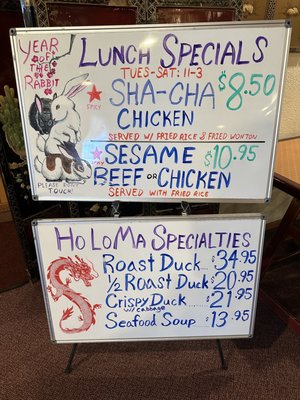 YEAR
OF
THE
RABBIT
LUNCH SPECIALS
TUES-SAT: 11-3
SHA-CHA $8.50
SPICY
CHICKEN
SERVED w/ FRIED RICE & FRIED WONTON
SESAME $10.95
BEEF OR CHICKEN
SERVED WITH FRIED RICE
PLEASE DON'T
TOUCH!
HO LO MA SPECIALTIES
Roast Duck... $34.95
1/2 Roast Duck... $20.95
Crispy Duck... $21.95
w/ cabbage
Seafood Soup... $13.95